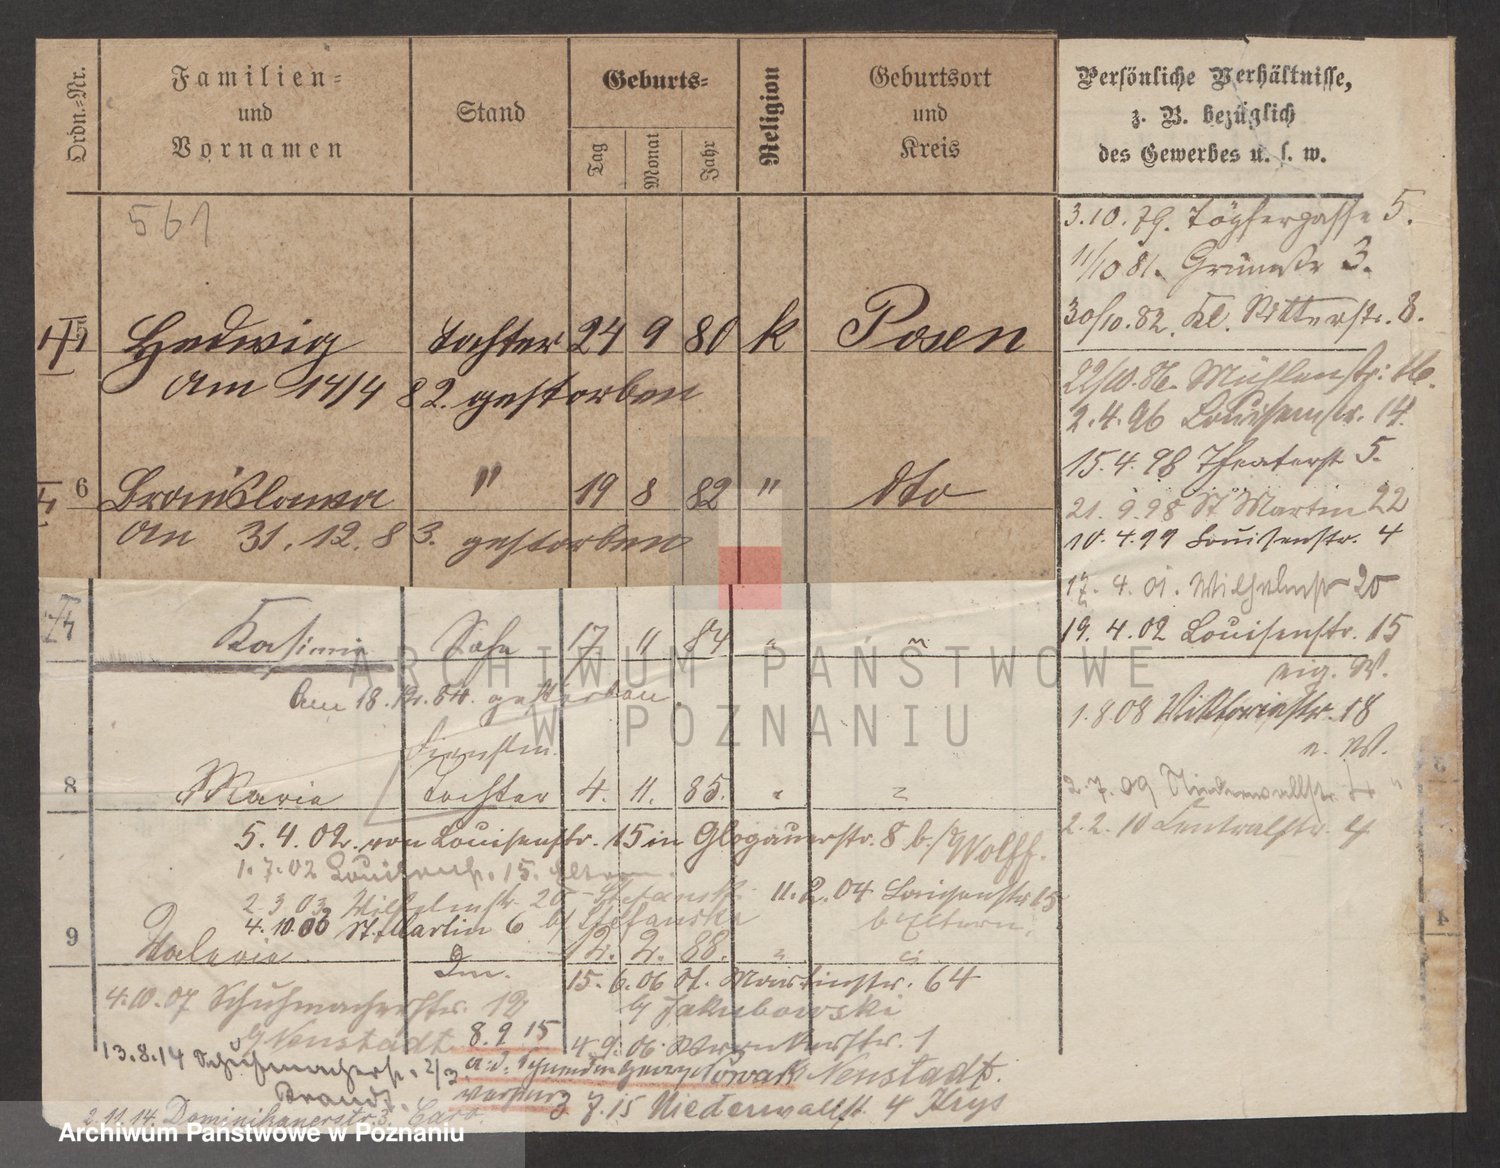 Ordn.-Nr.
Familien-
und
Vornamen
Stand
Geburts-
Tag
Monat
Jahr
Religion
Geburtsort
und
Kreis
Persönliche Verhältnisse,
z. B. bezüglich
des Gewerbes u. s. w.
561
5 Hedwig Tochter 24 9 80 k Posen
am 14/4 82. gestorben
6 Bronislawa " 19 8 82 " dto
am 31.12.83. gestorben
Kasimir Sohn 17 11 84 "
am 18. 84. gestorben
8 Maria Tochter 4. 11. 85. "
5.4.02. von Louisenstr. 15 in Glogauerstr. 8 b./ Wolff.
1.7.02 Louisenstr. 15. Eltern
2.3.03 Wilhelmstr. 20
11.2.04 Louisenstr 15
b Eltern.
4.10.06 St. Martin 6 b/ Stefanski
9 Valeria 12. 2. 88. "
15.6.06 St. Martinstr. 64
b/ Jakubowski
4.10.07 Schuhmacherstr. 12
b/ Neustadt.
4.9.06 1
Neustadt.
8.9 15
Nowak
13.8.14 Schuhmacherstr.
Brandt.
3 7.15 Niederwallst. 4 Krys
2.11.14. Dominikanerstr 3.
3.10.79. Töpfergasse 5.
11/10 81. Grünestr 3.
30/10.82. Kl. Ritterstr. 8.
22/10.86. Mühlenstr. 16.
2.4.96 Louisenstr. 14.
15.4.98 Theaterst 5.
21.9.98 St Martin 22
10.4.99 Louisenstr. 4
17.4.01. Wilhelmstr 20
19.4.02 Louisenstr. 15
eig. W.
1.8.08 Viktoriastr. 18
e. W.
2.7.09 Niederwallstr. 4
2.2.10 Centralstr. 4
ARCHIWUM PAŃSTWOWE
W POZNANIU
Archiwum Państwowe w Poznaniu